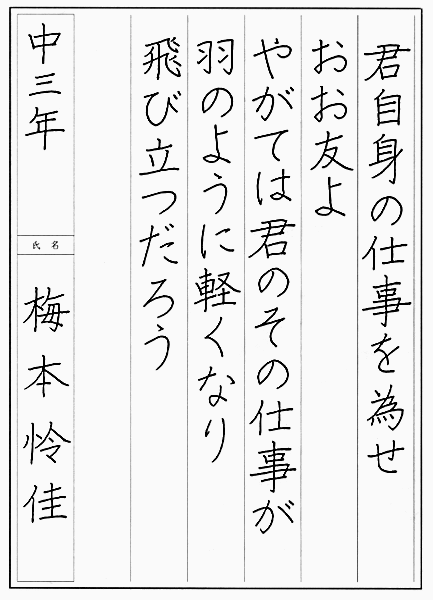 君自身の仕事を為せ
おお友よ
やがては君のその仕事が
羽のように軽くなり
飛び立つだろう
中三年
氏名
梅本怜佳